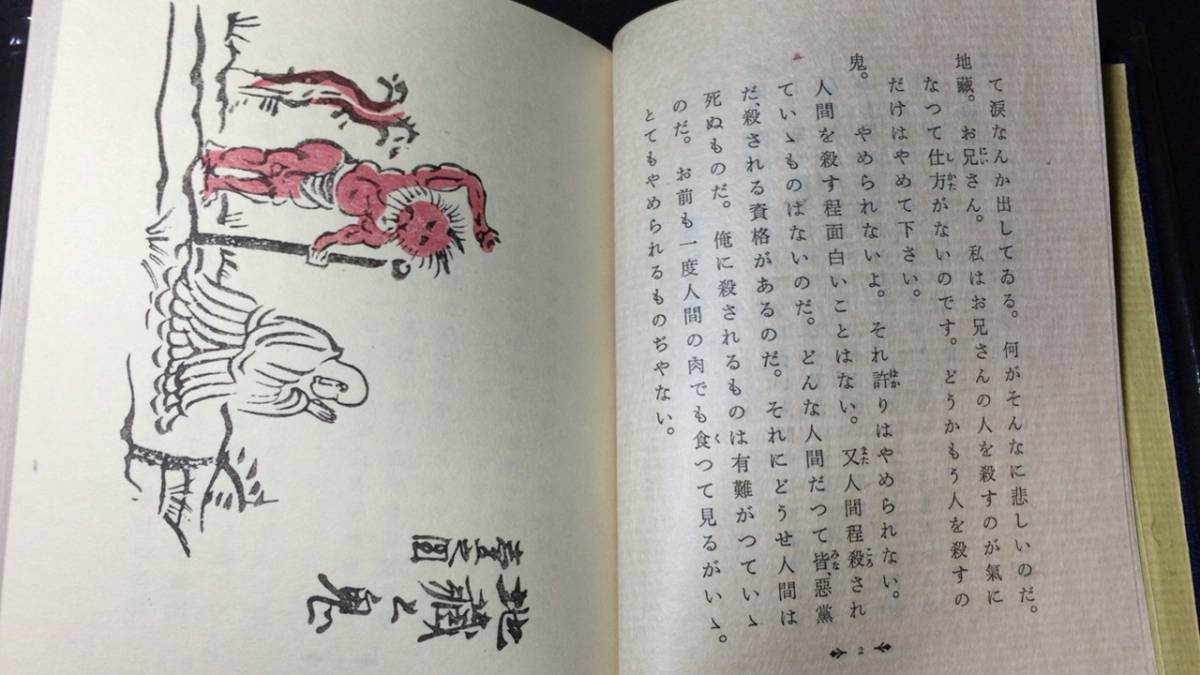 て涙なんか出してゐる。何がそんなに悲しいのだ。
地藏。お兄さん。私はお兄さんの人を殺すのが氣に
なつて仕方がないのです。どうかもう人を殺すの
だけはやめて下さい。
鬼。　やめられないよ。それ許りはやめられない。
人間を殺す程面白いことはない。又人間程殺され
ていゝものはないのだ。どんな人間だつて皆、惡黨
だ、殺される資格があるのだ。それにどうせ人間は
死ぬものだ。俺に殺されるものは有難がつていゝ
のだ。お前も一度人間の肉でも食つて見るがいゝ。
とてもやめられるものぢやない。
2
地藏と鬼